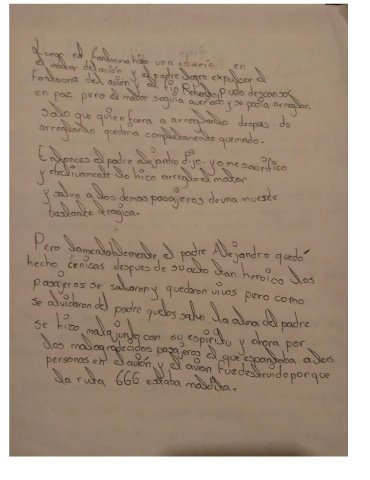 Luego el fantasma hizo una avería en
el motor del avión y el padre logro expulsar el
fantasma del avión y el tio Rolando pudo descansar
en paz pero el motor seguia averiado y se podia arreglar.
Solo que quien fuera a arreglarlo despues de
arreglarlo quedaria completamente quemado.
Entonces el padre alejandro dijo. yo me sacrifico
y efectivamente lo hizo arreglo el motor
y salvo a los demas pasajeros de una muerte
bastante tragica.
Pero lamentablemente el padre Alejandro quedó
hecho cenicas despues de su acto tan heroico los
pasajeros se salvaron y quedaron vivos pero como
se olvidaron del padre que los salvo la alma del padre
se hizo mala junto con su espiritu y ahora por
los malagradecidos pasajeros el que espantaba a las
personas en el avión y el avion fue destruido por que
la ruta 666 estaba maldita.